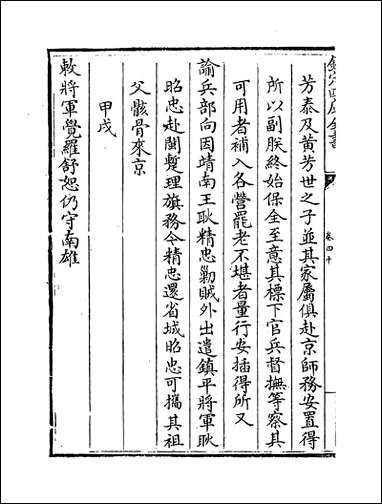 欽定四庫全書
卷四十
芳泰及黄芳世之子並其家屬俱赴京師務安置得
所以副朕終始保全至意其標下官兵督撫等察其
可用者補入各營罷老不堪者量行安插得所又
諭兵部向因靖南王耿精忠勦賊外出遣鎮平將軍耿
昭忠赴閩暫理旗務今精忠還省城昭忠可攜其祖
父骸骨來京
甲戌
敕將軍覺羅舒恕仍守南雄